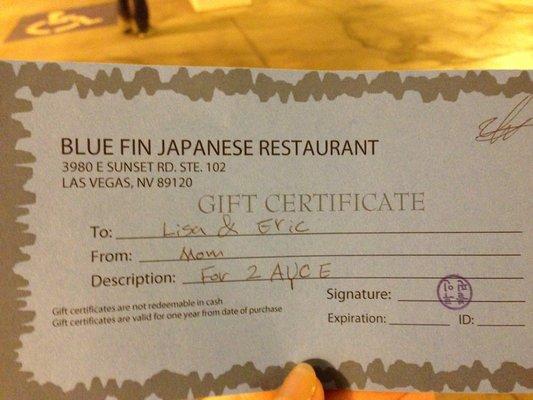 BLUE FIN JAPANESE RESTAURANT
3980 E SUNSET RD. STE. 102
LAS VEGAS, NV 89120
GIFT CERTIFICATE
To: Lisa & Eric
From: Mom
Description: For 2 AYCE
Gift certificates are not redeemable in cash
Gift certificates are valid for one year from date of purchase
Signature:
Expiration: ID: